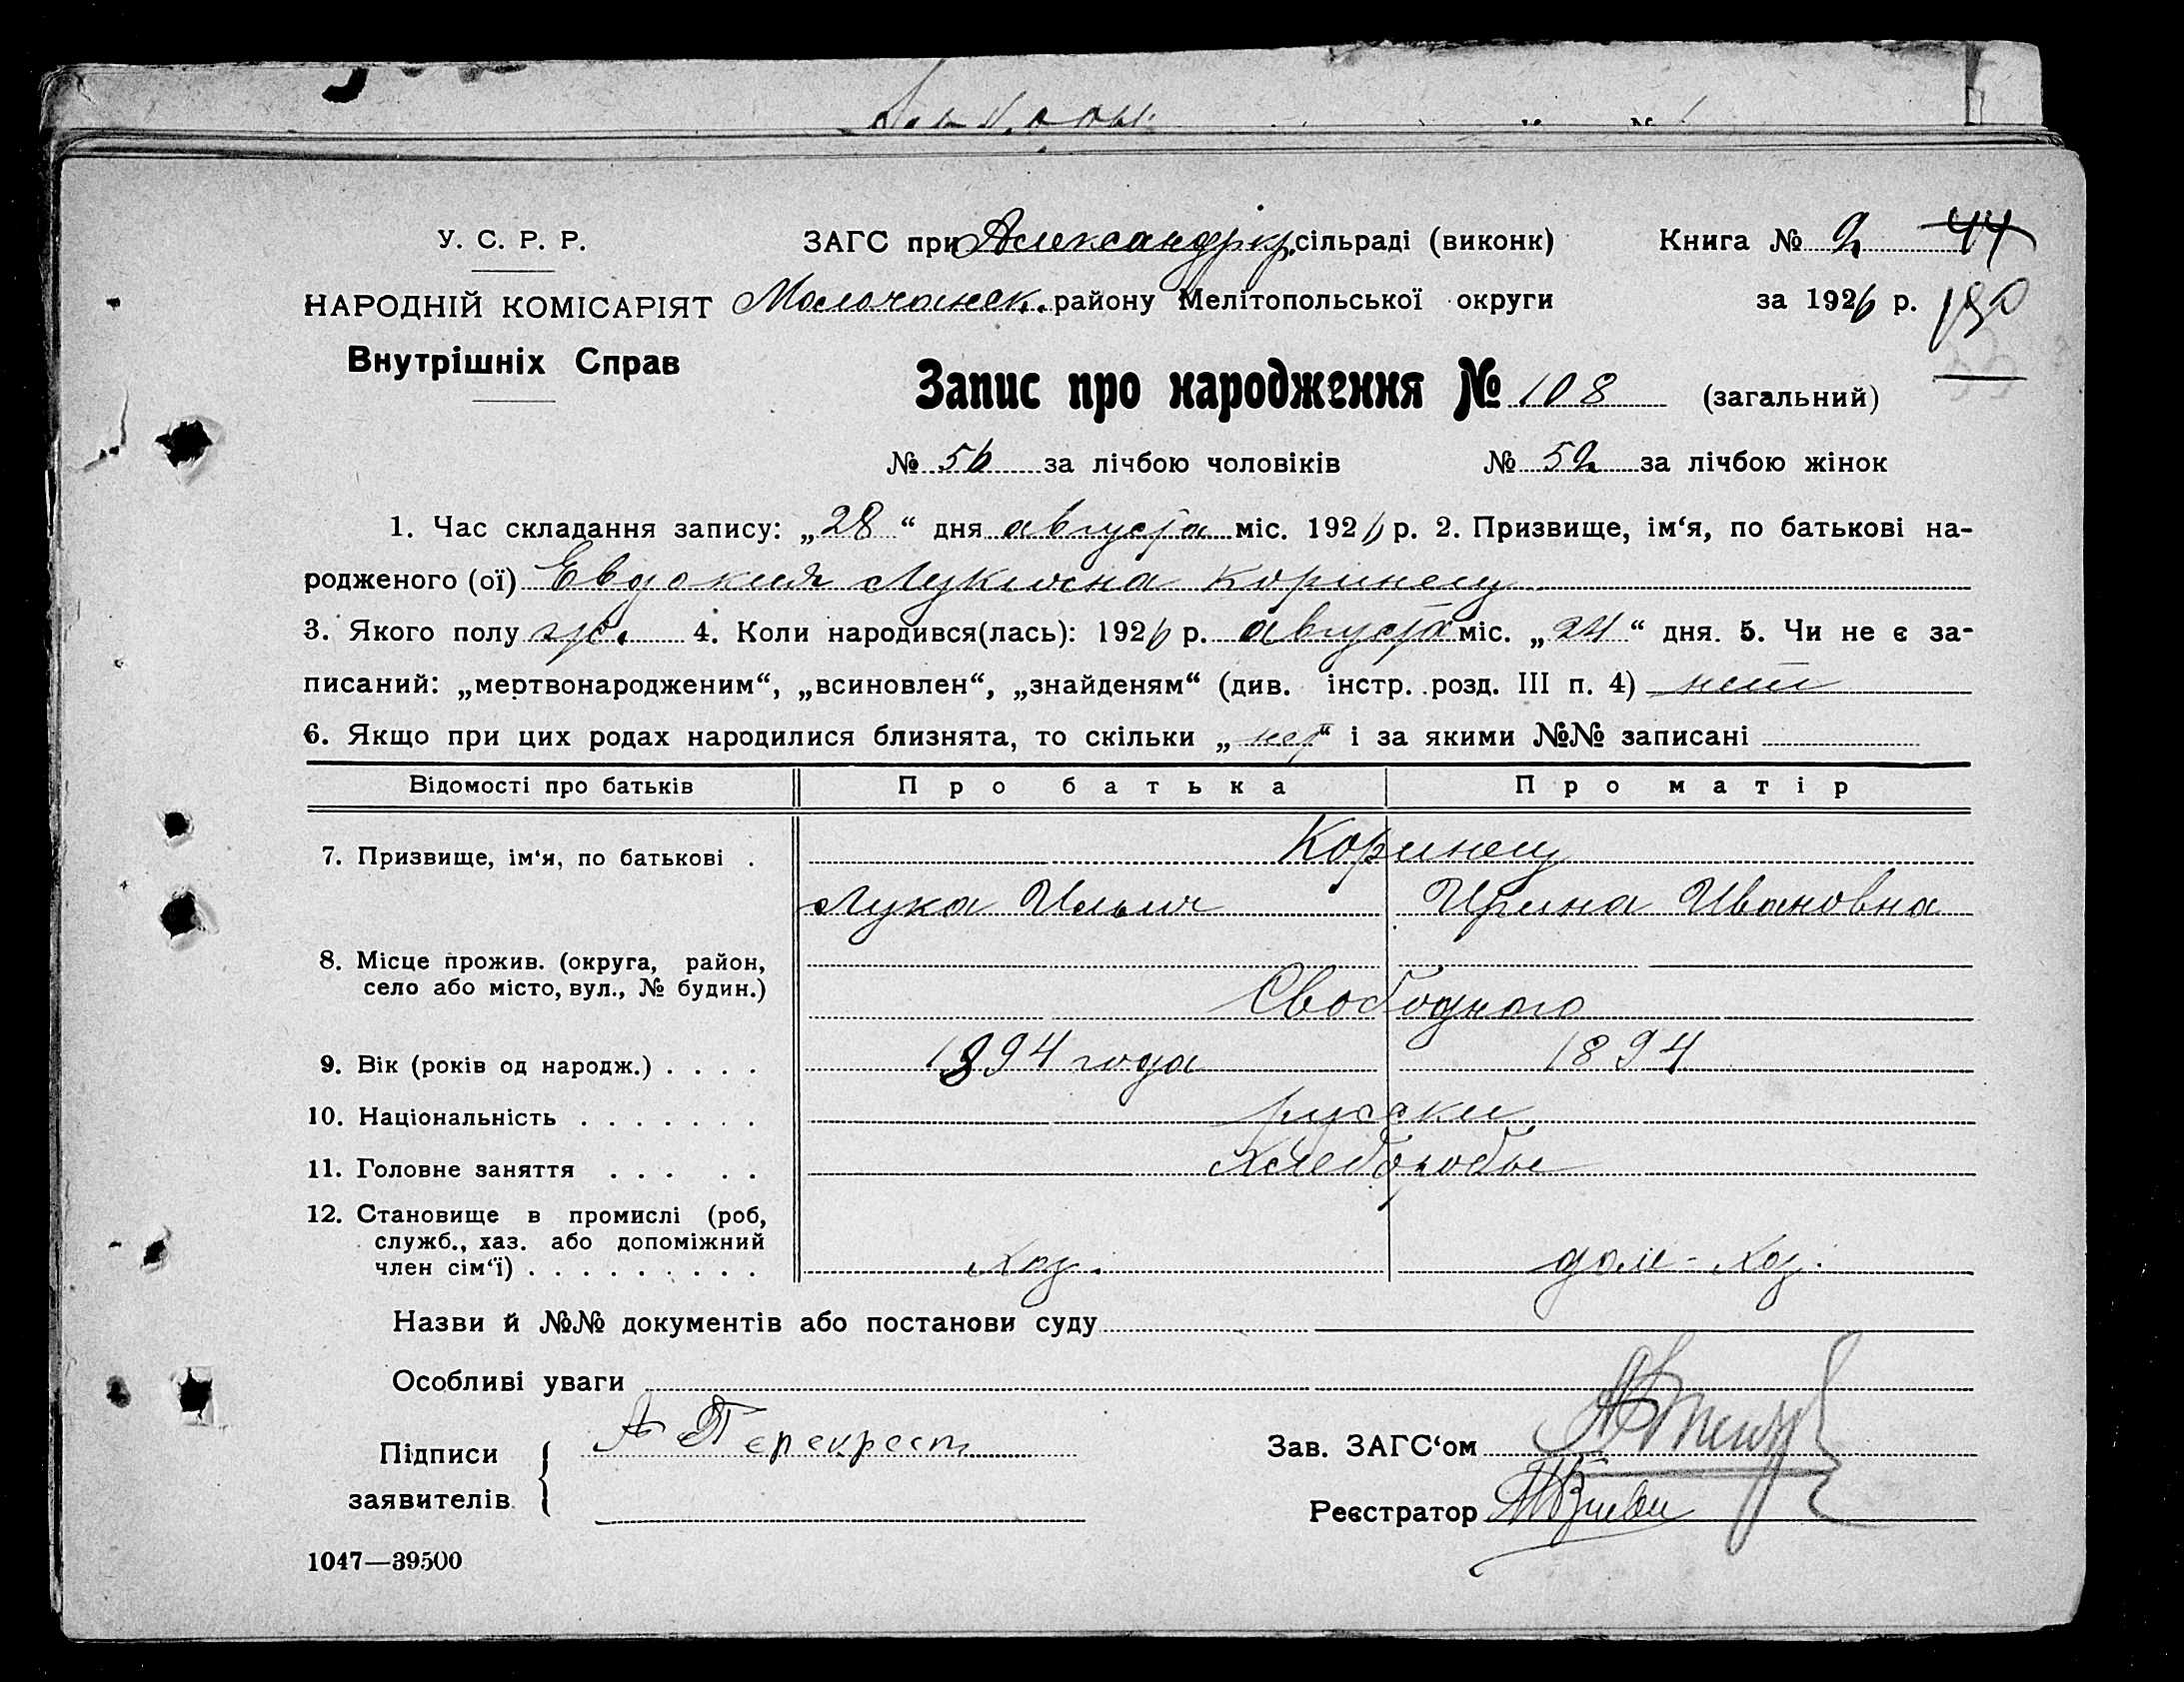 У. С. Р. Р.
ЗАГС при Александркр. сільраді (виконк)
Книга № 2 44
НАРОДНІЙ КОМІСАРІЯТ
Молочанск. району Мелітопольської округи
за 1926 р.
Внутрішніх Справ
Запис про народження № 108 (загальний)
№ 56 за лічбою чоловіків № 52 за лічбою жінок
1. Час складання запису: „28“ дня августа міс. 1926 р. 2. Призвище, ім‘я, по батькові на-
родженого (ої) Евдокия Лукична Коринец
3. Якого полу 4. Коли народився(лась): 1926 р. августа міс. „24“ дня. 5. Чи не є за-
писаний: „мертвонародженим“, „всиновлен“, „знайденям“ (див. інстр. розд. III п. 4) нет
6. Якщо при цих родах народилися близнята, то скільки „нет“ і за якими №№ записані
Відомості про батьків Про батька Про матір
7. Призвище, ім‘я, по батькові . Коринец
Лука Ильич Ирина Ивановна
8. Місце прожив. (округа, район,
село або місто, вул., № будин.)
Свободного
9. Вік (років од народж.) . . . . 1894 года 1894
10. Національність . . . . . . . руски
11. Головне заняття . . . . . Хлеборобы
12. Становище в промислі (роб,
служб., хаз. або допоміжний
член сім‘ї) . . . . . . . . . хоз. дом-хоз.
Назви й №№ документів або постанови суду
Особливі уваги
Підписи
заявителів
А Перекрест
Зав. ЗАГС‘ом
Реєстратор
1047—39500